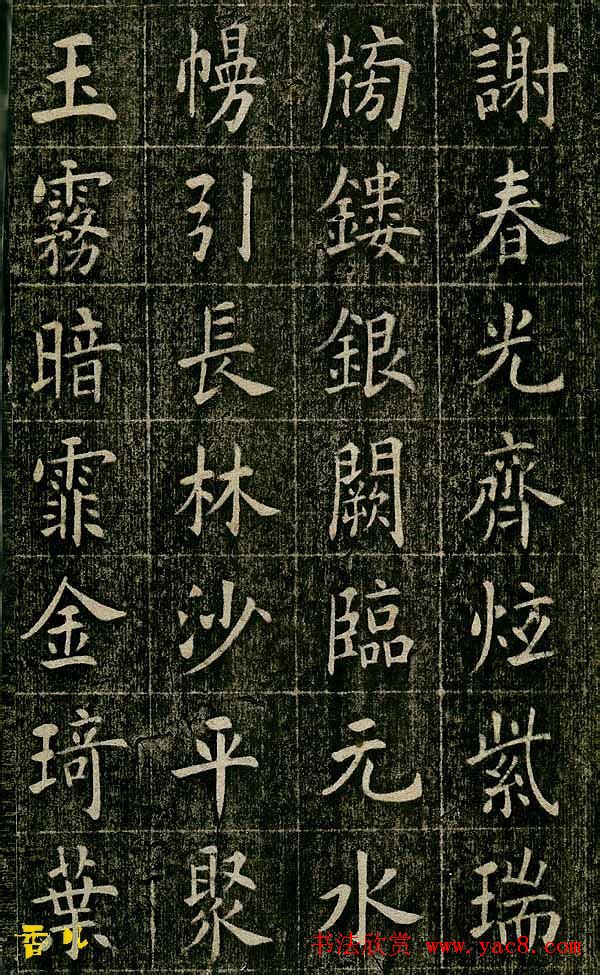 謝春光齊炫紫瑞
牓鏤銀闕臨元水
幔引長林沙平聚
玉霧暗霏金琦葉
书法欣赏 www.yac8.com